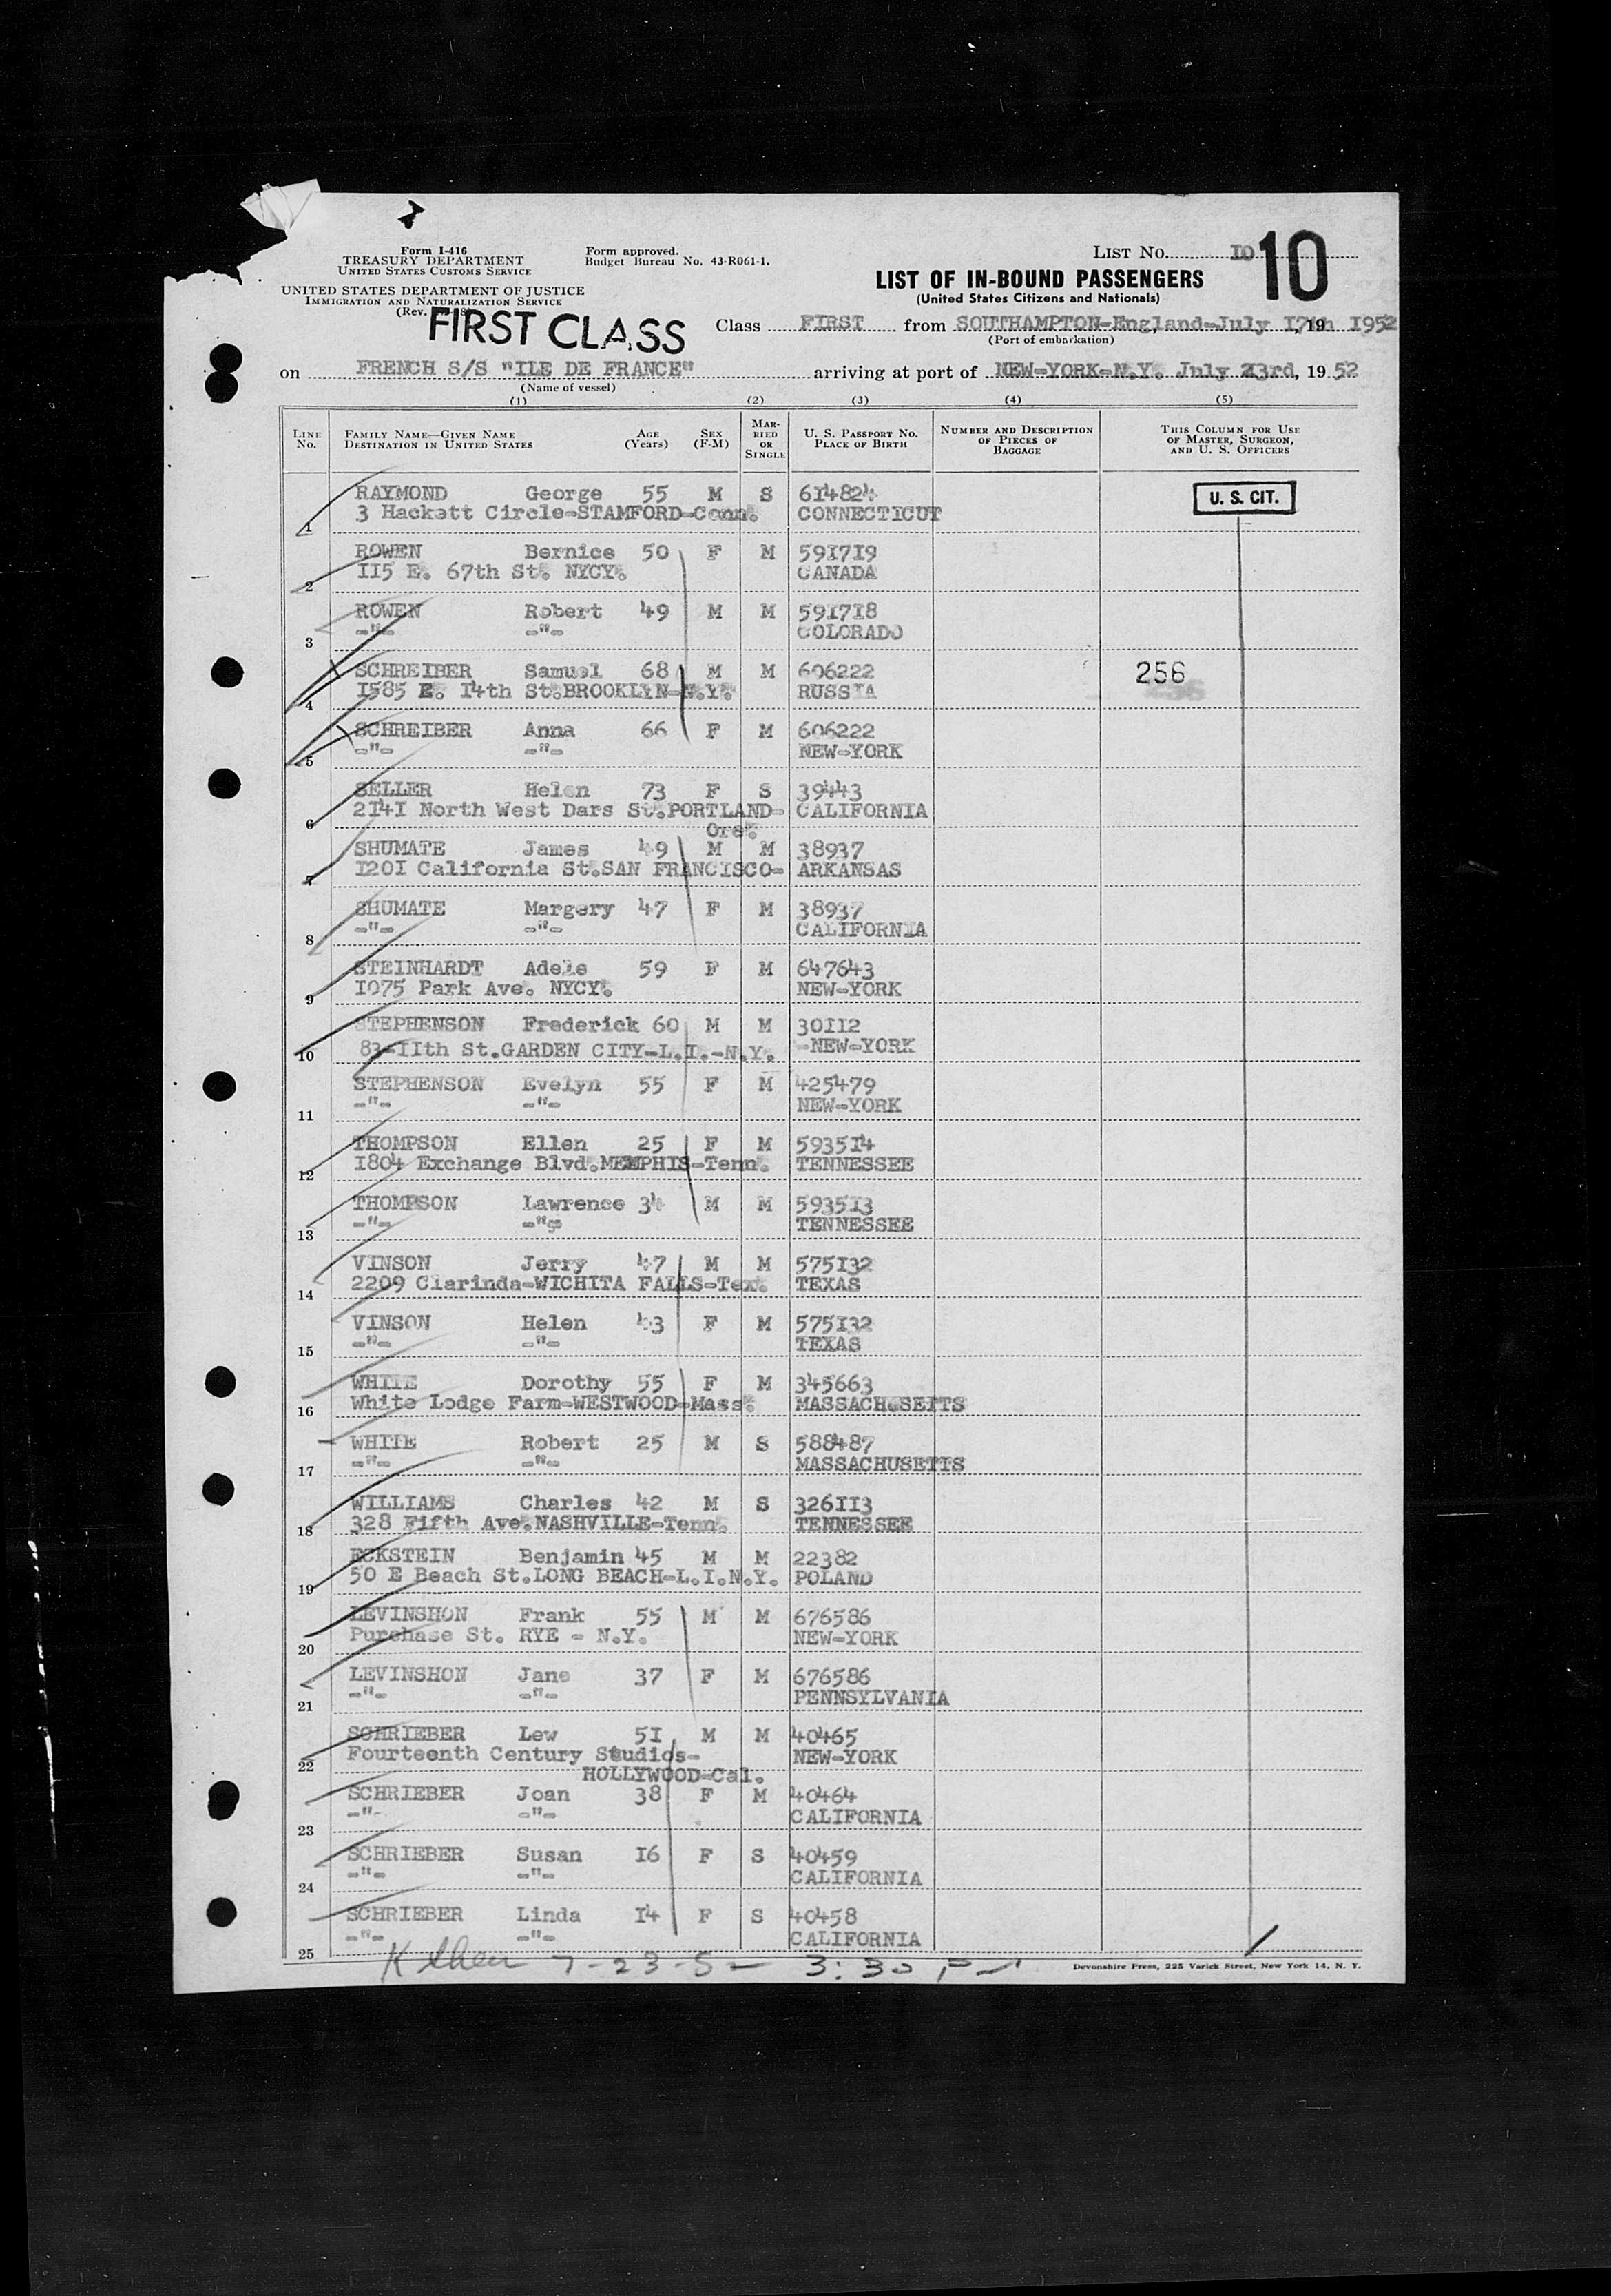 Form I-416
TREASURY DEPARTMENT
UNITED STATES CUSTOMS SERVICE
UNITED STATES DEPARTMENT OF JUSTICE
IMMIGRATION AND NATURALIZATION SERVICE
(Rev.
Form approved.
Budget Bureau No. 43-R061-1.
LIST No. 10 10
LIST OF IN-BOUND PASSENGERS
(United States Citizens and Nationals)
FIRST CLASS
Class FIRST from SOUTHAMPTON-England-July 17th, 19 1952
(Port of embarkation)
on FRENCH S/S "ILE DE FRANCE" arriving at port of NEW-YORK-N.Y. July 23rd, 1952
(Name of vessel)
(1) (2) (3) (4) (5)
LINE No. FAMILY NAME—GIVEN NAME DESTINATION IN UNITED STATES AGE (Years) SEX (F-M) MARRIED OR SINGLE U. S. PASSPORT NO. PLACE OF BIRTH NUMBER AND DESCRIPTION OF PIECES OF BAGGAGE THIS COLUMN FOR USE OF MASTER, SURGEON, AND U. S. OFFICERS
RAYMOND George 55 M S 614824 U. S. CIT.
1 3 Hackett Circle-STAMFORD-Conn. CONNECTICUT
ROWEN Bernice 50 F M 591719
2 115 E. 67th St. NYCY. CANADA
ROWEN Robert 49 M M 591718
3 -"- -"- COLORADO
SCHREIBER Samuel 68 M M 606222 256
4 1585 E. 14th St.BROOKLYN-N.Y. RUSSIA
SCHREIBER Anna 66 F M 606222
5 -"- -"- NEW-YORK
SELLER Helen 73 F S 39443
6 2141 North West Dars St.PORTLAND- CALIFORNIA
Ore.
SHUMATE James 49 M M 38937
7 1201 California St.SAN FRANCISCO- ARKANSAS
SHUMATE Margery 47 F M 38937
8 -"- -"- CALIFORNIA
STEINHARDT Adele 59 F M 647643
9 1075 Park Ave. NYCY. NEW-YORK
STEPHENSON Frederick 60 M M 30112
10 83-11th St.GARDEN CITY-L.I.-N.Y. -NEW-YORK
STEPHENSON Evelyn 55 F M 425479
11 -"- -"- NEW-YORK
THOMPSON Ellen 25 F M 593514
12 1804 Exchange Blvd.MEMPHIS-Tenn. TENNESSEE
THOMPSON Lawrence 34 M M 593513
13 -"- -"- TENNESSEE
VINSON Jerry 47 M M 575132
14 2209 Clarinda-WICHITA FALLS-Tex. TEXAS
VINSON Helen 43 F M 575132
15 -"- -"- TEXAS
WHITE Dorothy 55 F M 345663
16 White Lodge Farm-WESTWOOD-Mass. MASSACHUSETTS
WHITE Robert 25 M S 588487
17 -"- -"- MASSACHUSETTS
WILLIAMS Charles 42 M S 326113
18 328 Fifth Ave.NASHVILLE-Tenn. TENNESSEE
ECKSTEIN Benjamin 45 M M 22382
19 50 E Beach St.LONG BEACH-L.I.N.Y. POLAND
LEVINSHON Frank 55 M M 676586
20 Purchase St. RYE - N.Y. NEW-YORK
LEVINSHON Jane 37 F M 676586
21 -"- -"- PENNSYLVANIA
SCHRIEBER Lew 51 M M 40465
22 Fourteenth Century Studios- NEW-YORK
HOLLYWOOD-Cal.
SCHRIEBER Joan 38 F M 40464
23 -"- -"- CALIFORNIA
SCHRIEBER Susan 16 F S 40459
24 -"- -"- CALIFORNIA
SCHRIEBER Linda 14 F S 40458
25 -"- -"- CALIFORNIA
7-23-5 3:30 P
Devonshire Press, 225 Varick Street, New York 14, N. Y.